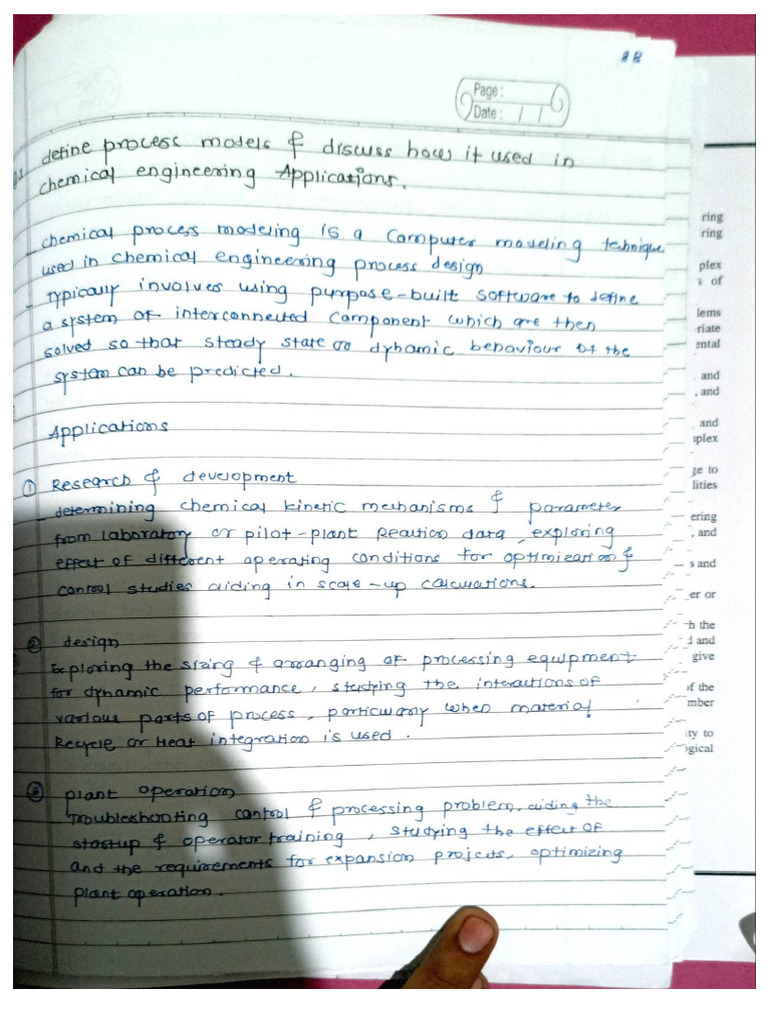 88
Page:
Date: / /
define process models & discuss how it used in
chemical engineering Applications.
- chemical process modeling is a computer modeling technique
used in chemical engineering process design
- Typically involves using purpose-built software to define
a system of interconnected component which are then
solved so that steady state or dynamic behaviour of the
system can be predicted.
Applications
① Research & development
determining chemical kinetic mechanisms & parameter
from laboratory or pilot-plant Reaction data, exploring
effect of different operating conditions for optimization &
control studies aiding in scale-up calculations.
② design
Exploring the sizing & arranging of processing equipment
for dynamic performance, studying the interactions of
various parts of process, particularly when material
Recycle or Heat integration is used.
③ plant operation
Troubleshooting control & processing problem, aiding the
startup & operator training, studying the effect of
and the requirements for expansion projects, optimizing
plant operation.
ring
ring
plex
of
lems
riate
ental
and
, and
and
plex
ge to
lities
ering
, and
s and
er or
h the
and
give
of the
mber
ity to
gical